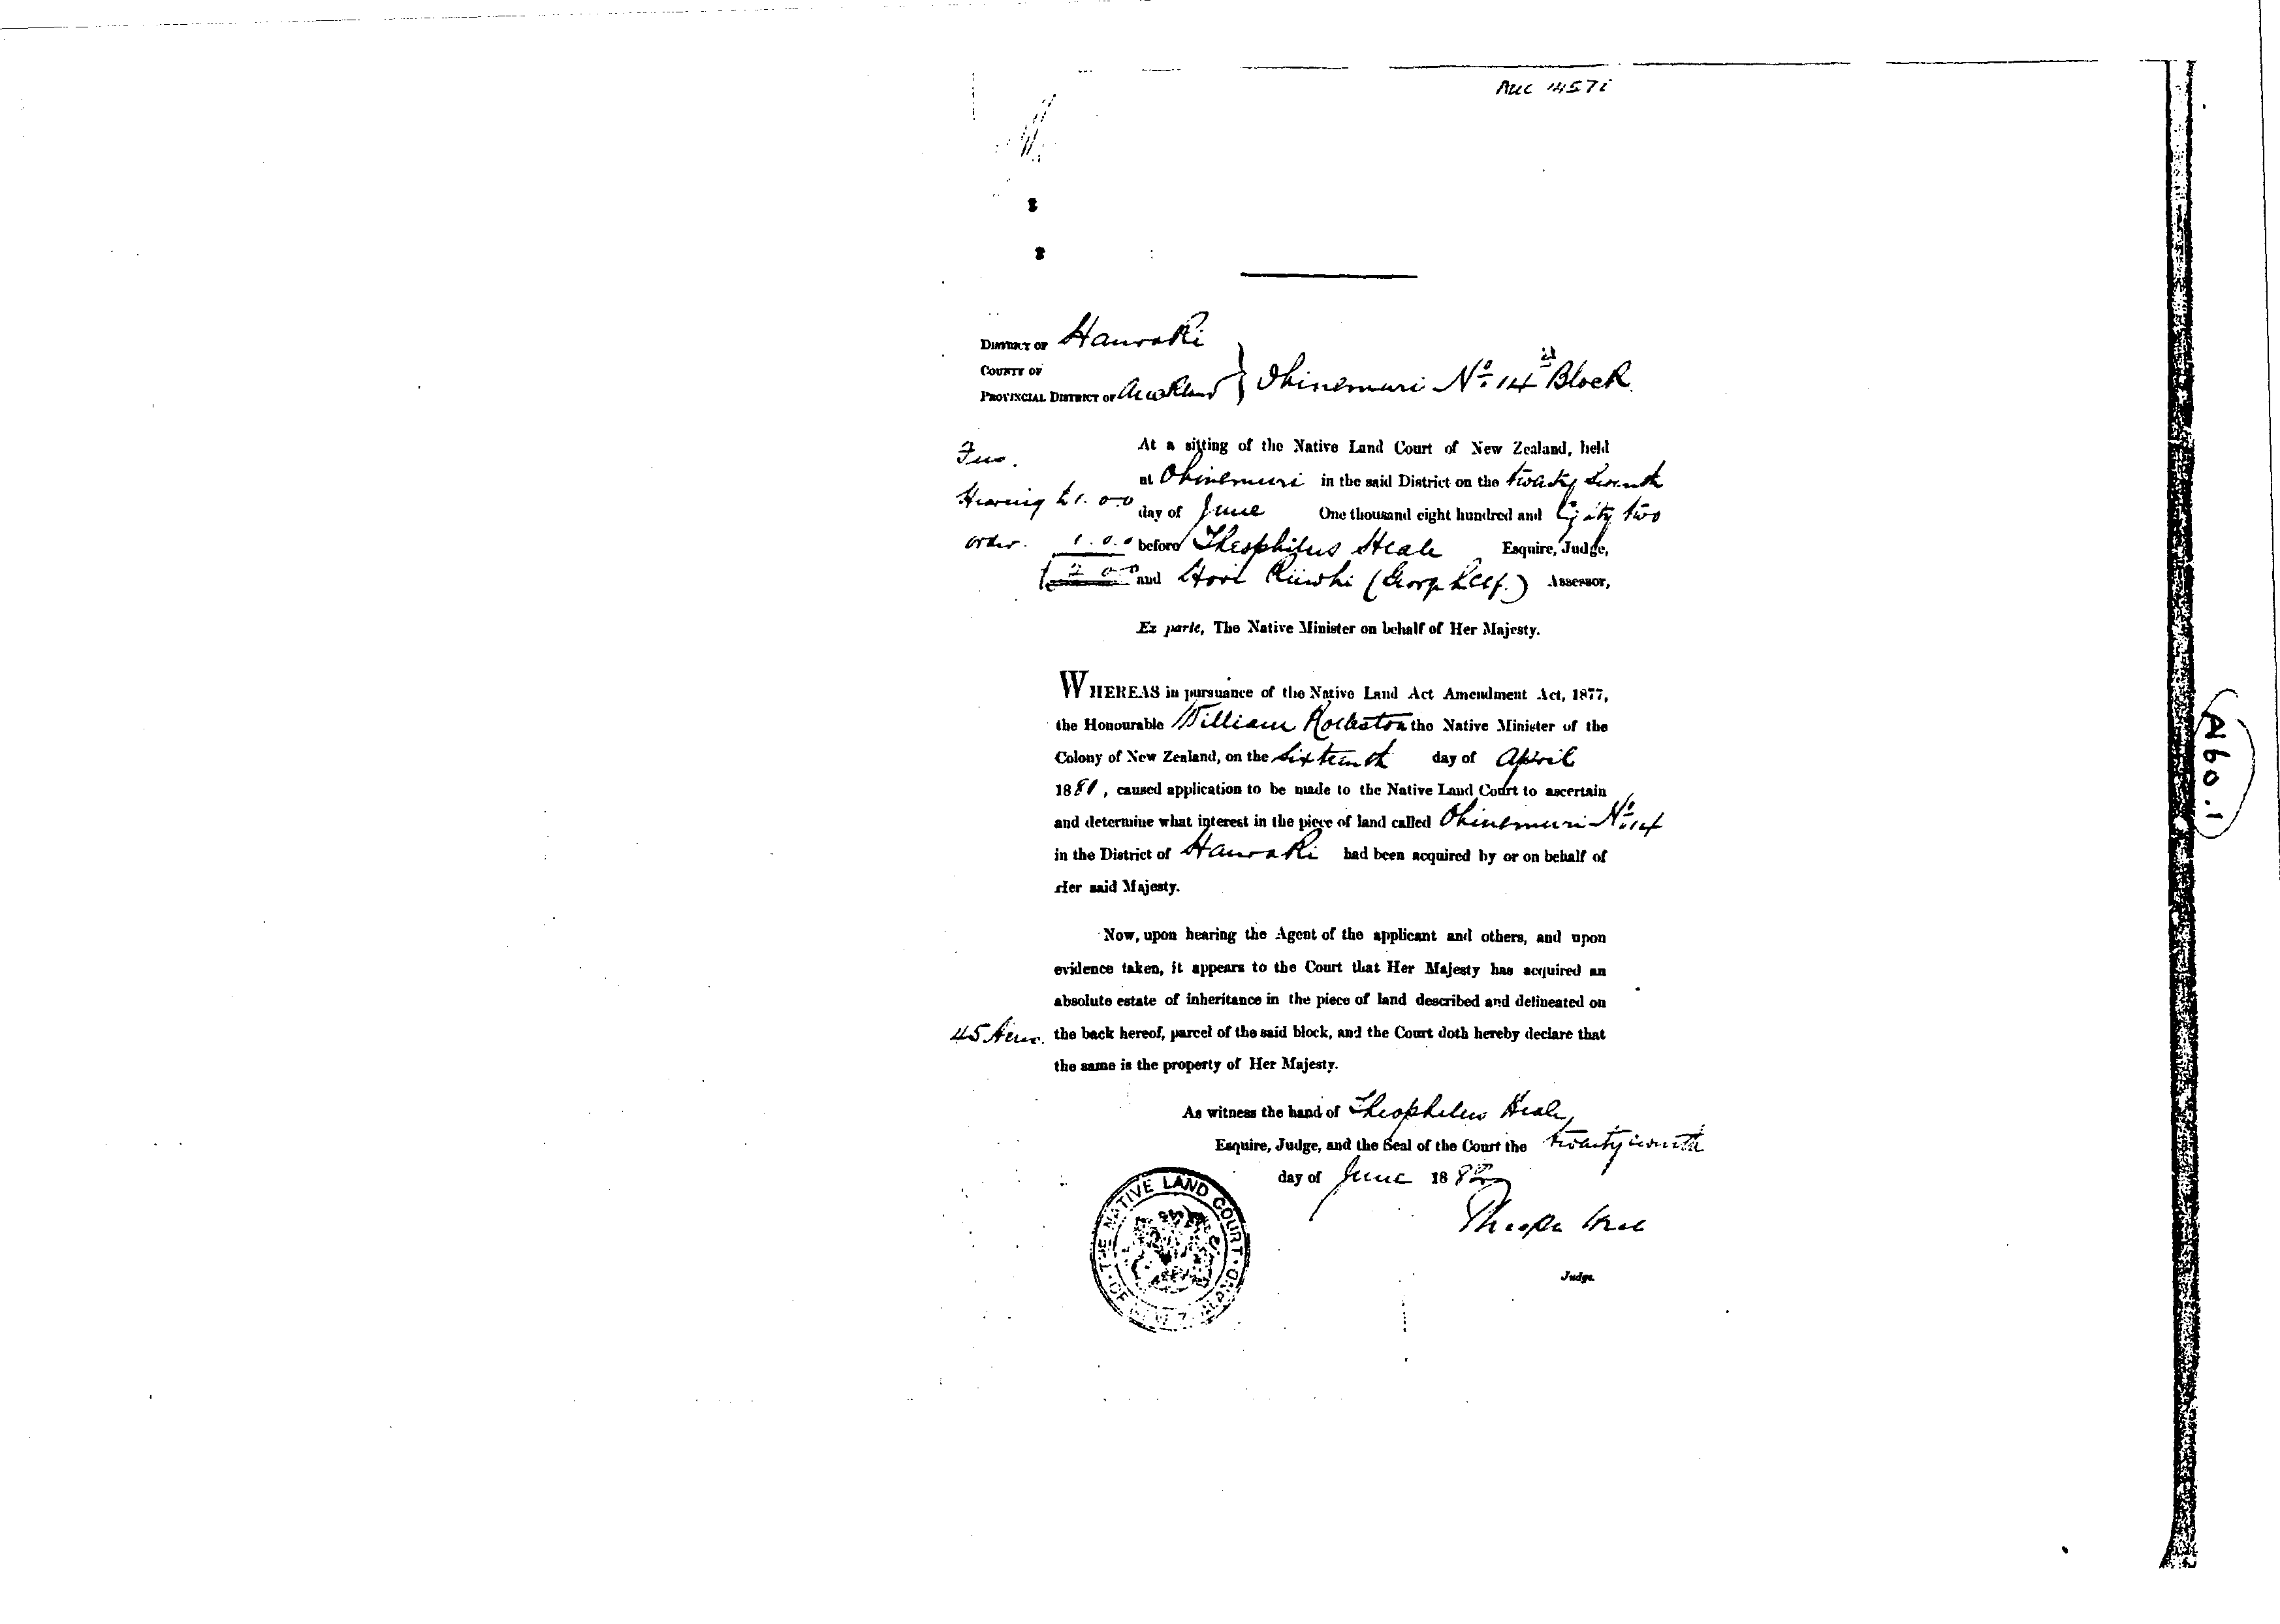 AUC 1457i
DISTRICT OF Hauraki
COUNTY OF
PROVINCIAL DISTRICT OF Auckland } Ohinemuri No. 14 Block.
At a sitting of the Native Land Court of New Zealand, held
Fees.
at Ohinemuri in the said District on the twenty seventh
Hearing £1.0.0
day of June One thousand eight hundred and Eighty two
order. 1.0.0 before Theophilus Heale Esquire, Judge,
£2.0.0 and Hori (George) Assessor,
Ex parte, The Native Minister on behalf of Her Majesty.
WHEREAS in pursuance of the Native Land Act Amendment Act, 1877,
the Honourable William Rolleston the Native Minister of the
Colony of New Zealand, on the sixteenth day of April
1881, caused application to be made to the Native Land Court to ascertain
and determine what interest in the piece of land called Ohinemuri No. 14
in the District of Hauraki had been acquired by or on behalf of
Her said Majesty.
Now, upon hearing the Agent of the applicant and others, and upon
evidence taken, it appears to the Court that Her Majesty has acquired an
absolute estate of inheritance in the piece of land described and delineated on
45 Acres. the back hereof, parcel of the said block, and the Court doth hereby declare that
the same is the property of Her Majesty.
As witness the hand of Theophilus Heale
Esquire, Judge, and the Seal of the Court the twenty seventh
day of June 1882
Theoph Heale
Judge.
THE NATIVE LAND COURT OF NEW ZEALAND
A60.1